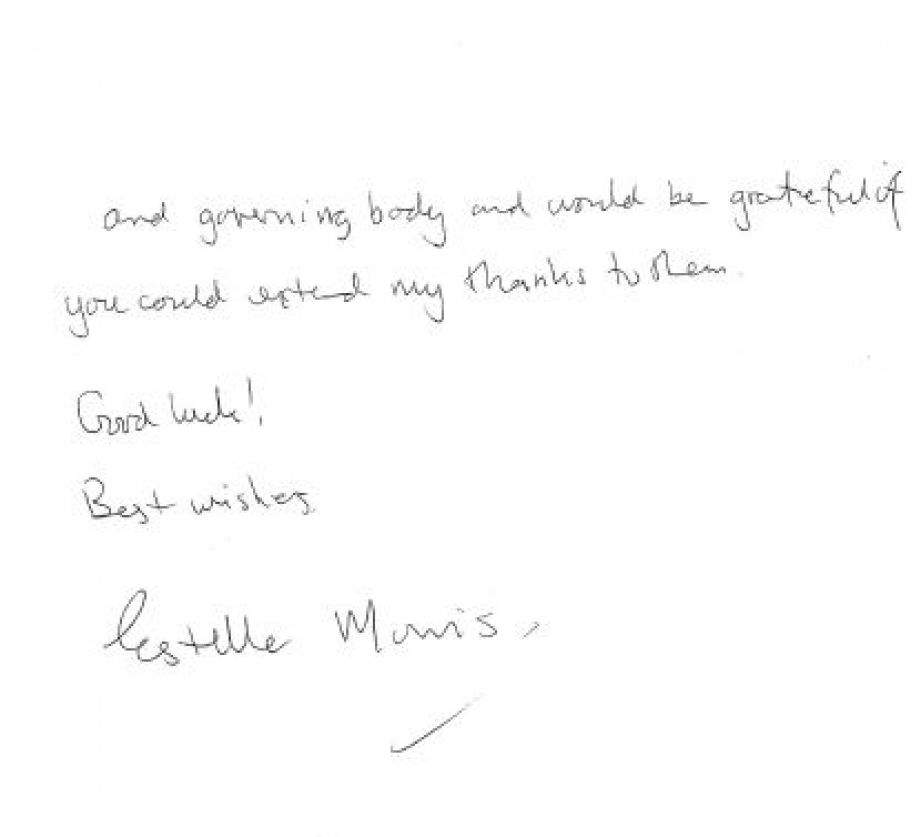 and governing body and would be grateful if
you could extend my thanks to them.
Good luck!
Best wishes
Estelle Morris,